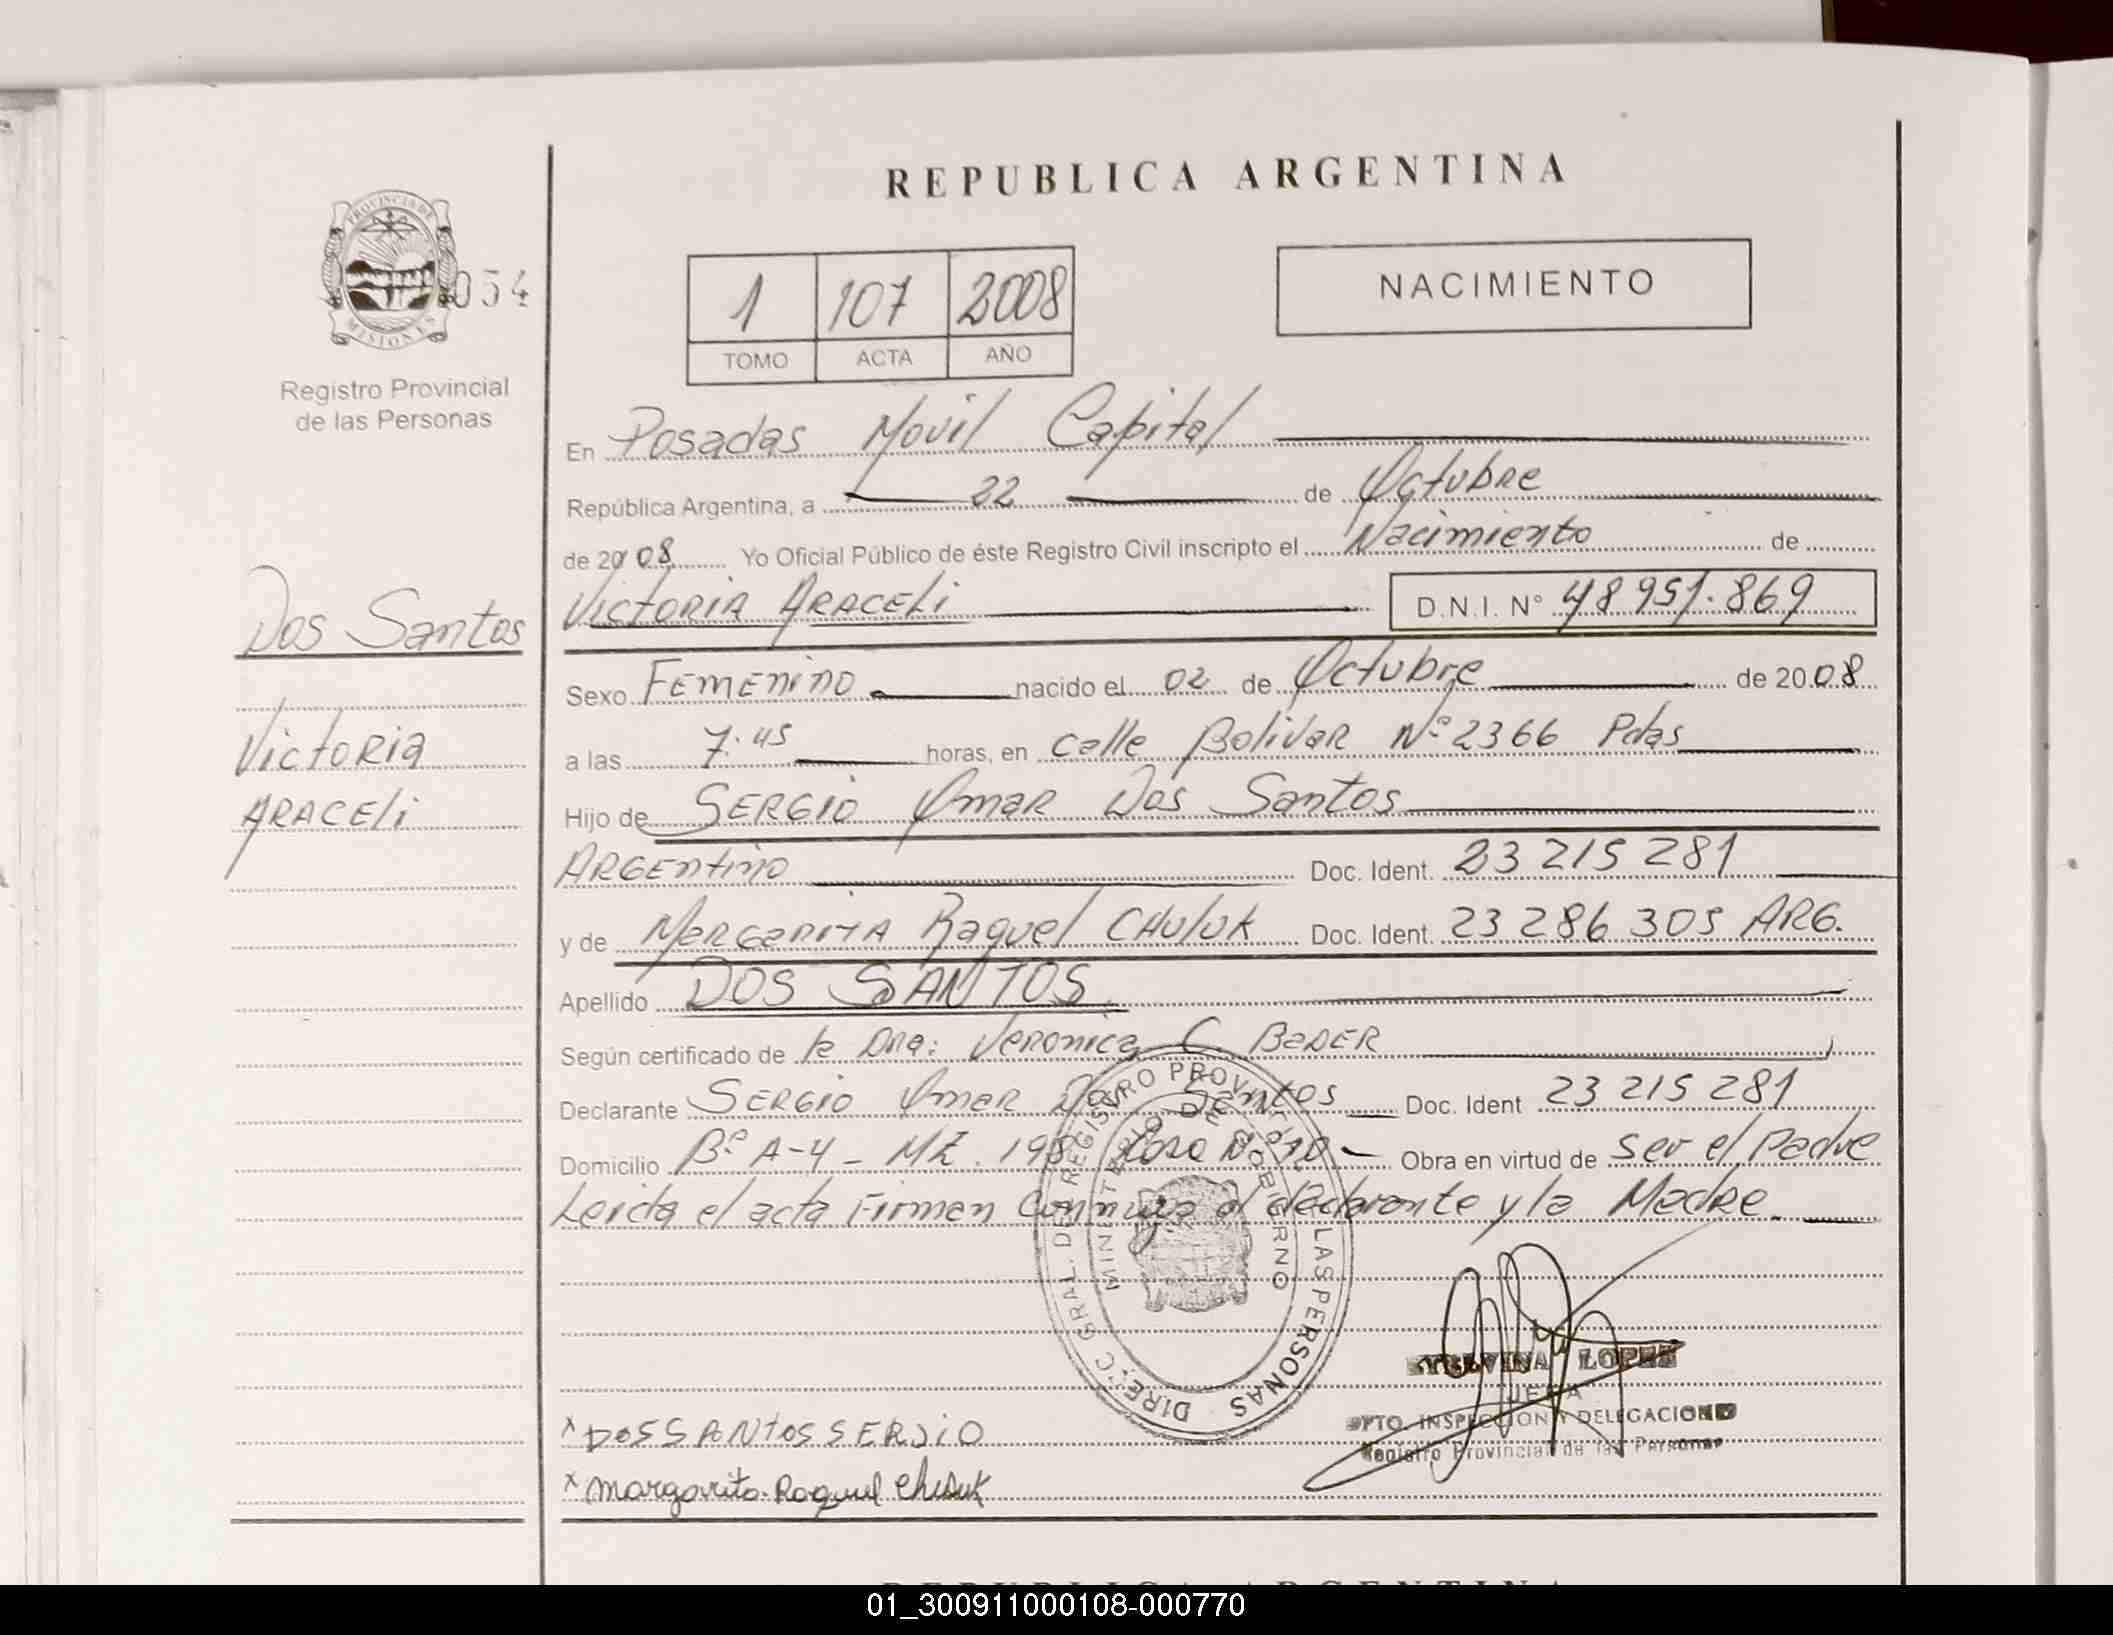 REPUBLICA ARGENTINA
PROVINCIA DE
MISIONES
054
Registro Provincial
de las Personas
1 107 2008
TOMO ACTA AÑO
NACIMIENTO
En Posadas Movil Capital
República Argentina, a 22 de Octubre
de 2008 Yo Oficial Público de éste Registro Civil inscripto el Nacimiento de
VICTORIA ARACELi D.N.I. Nº 48 951.869
Dos Santos
Victoria
ARACELi
Sexo FEMENINO nacido el 02 de Octubre de 2008
a las 7.45 horas, en calle Bolivar Nº 2366 Pdas
Hijo de SERGIO Omar Dos Santos
ARGENtino Doc. Ident. 23 215 281
y de MARGARITA Raquel CHULUK Doc. Ident. 23 286 305 ARG.
Apellido DOS SANTOS
Según certificado de la Dra: Veronica C. BADER
Declarante SERGIO Omar Dos Santos Doc. Ident 23 215 281
Domicilio Bº A-4 - MZ. 198 Casa Nº 10 - Obra en virtud de ser el Padre
Leida el acta Firman Conmigo el declarante y la Madre.
DIREC. GRAL. DEL REGISTRO PROVINCIAL DE LAS PERSONAS
MINISTERIO DE GOBIERNO
LOPEZ
JEFA
DPTO. INSPECCION Y DELEGACIONES
Registro Provincial de las Personas
x DOS SANtOS SERJiO
x Margarita Raquel Chuluk
REPUBLICA ARGENTINA
01_300911000108-000770